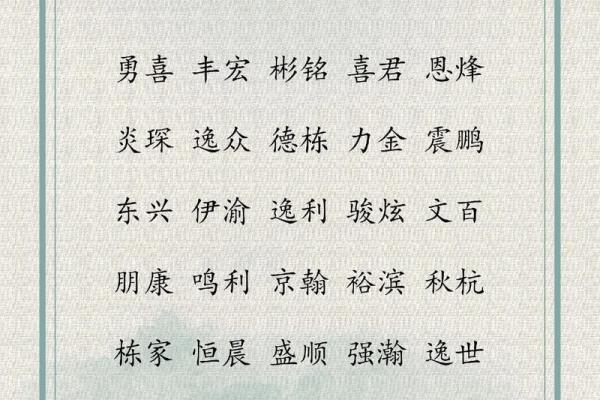 勇喜 丰宏 彬铭 喜君 恩烽
炎琛 逸众 德栋 力金 震鹏
东兴 伊渝 逸利 骏炫 文百
朋康 鸣利 京翰 裕滨 秋杭
栋家 恒晨 盛顺 强瀚 逸世